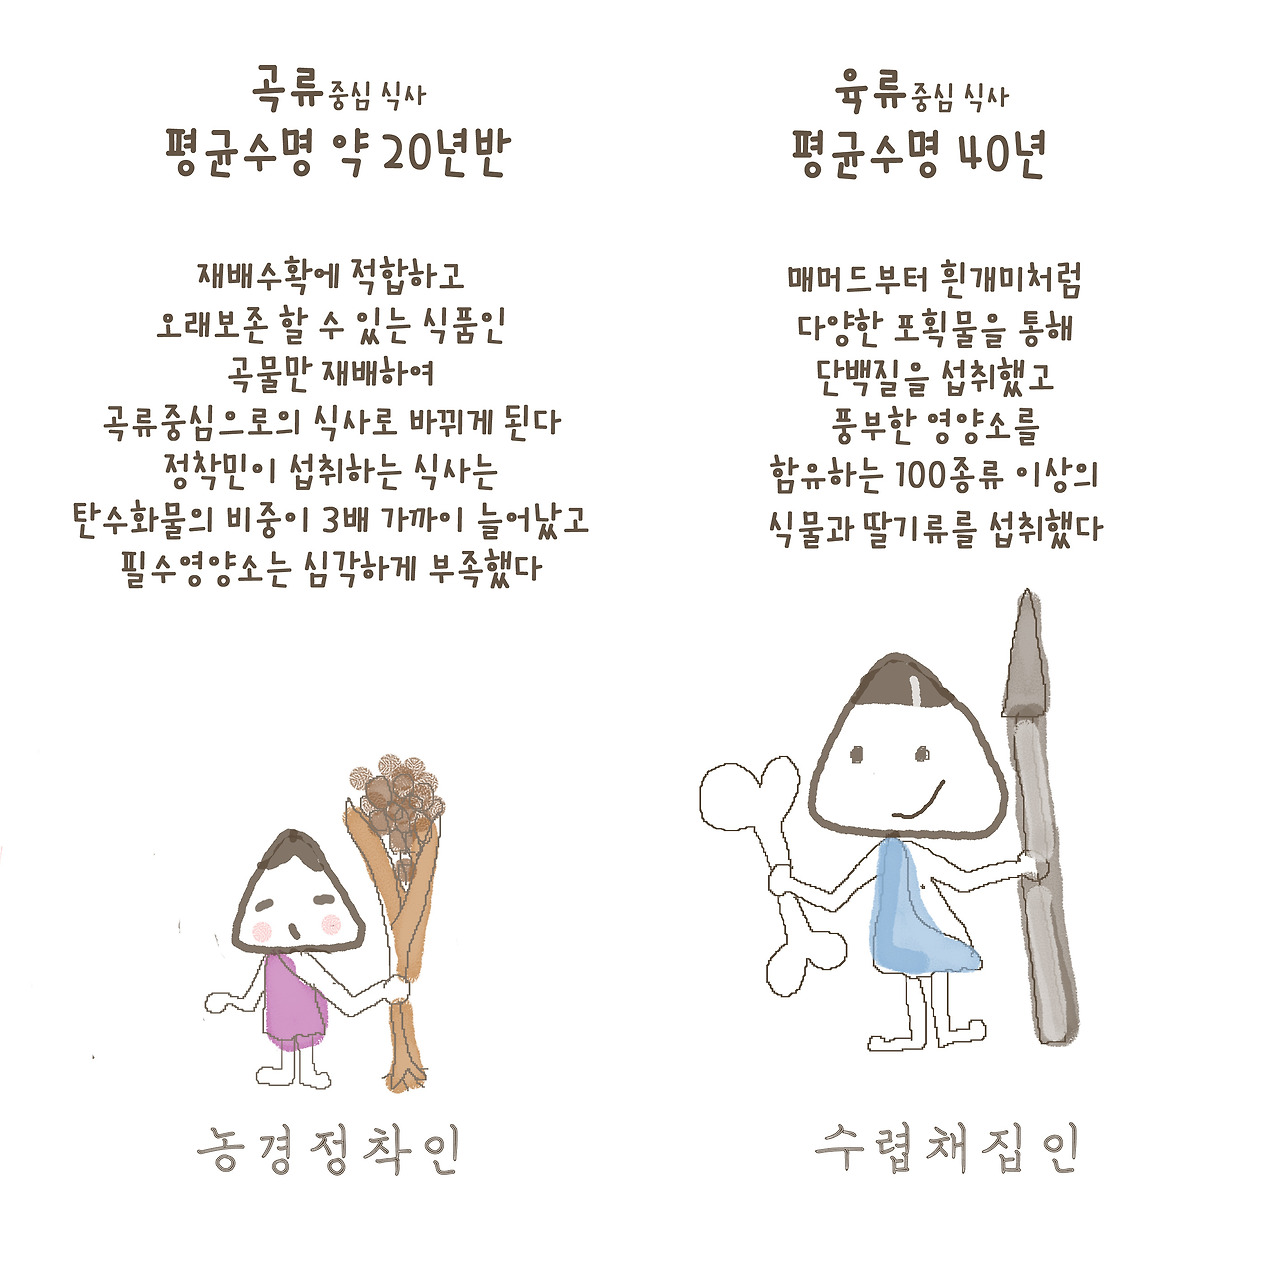 곡류중심 식사
평균수명 약 20년반
재배수확에 적합하고
오래보존 할 수 있는 식품인
곡물만 재배하여
곡류중심으로의 식사로 바뀌게 된다
정착민이 섭취하는 식사는
탄수화물의 비중이 3배 가까이 늘어났고
필수영양소는 심각하게 부족했다
농경정착인
육류중심 식사
평균수명 40년
매머드부터 흰개미처럼
다양한 포획물을 통해
단백질을 섭취했고
풍부한 영양소를
함유하는 100종류 이상의
식물과 딸기류를 섭취했다
수렵채집인